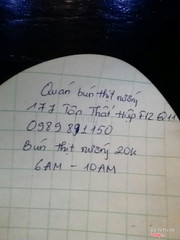 Quán bún thịt nướng
177 Tôn Thất Hiệp F12 Q11
0989 891150
Bún thịt nướng 20k
6AM - 10AM